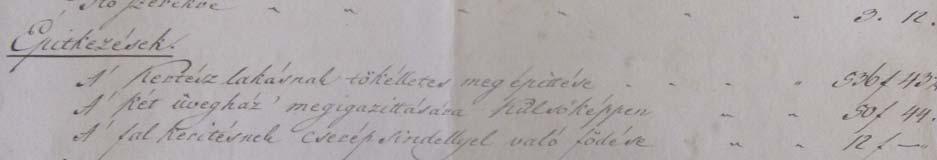 szerekre " " " " " 3. 12.
Épitkezések.
A' Kertész lakásnak tökélletes megépittése - - - " 536 f 43
A' két üvegház' megigazittására külsőképpen " " 50 f 44.
A' fal keritésnek cserép sindellyel való födése " " 12 f —